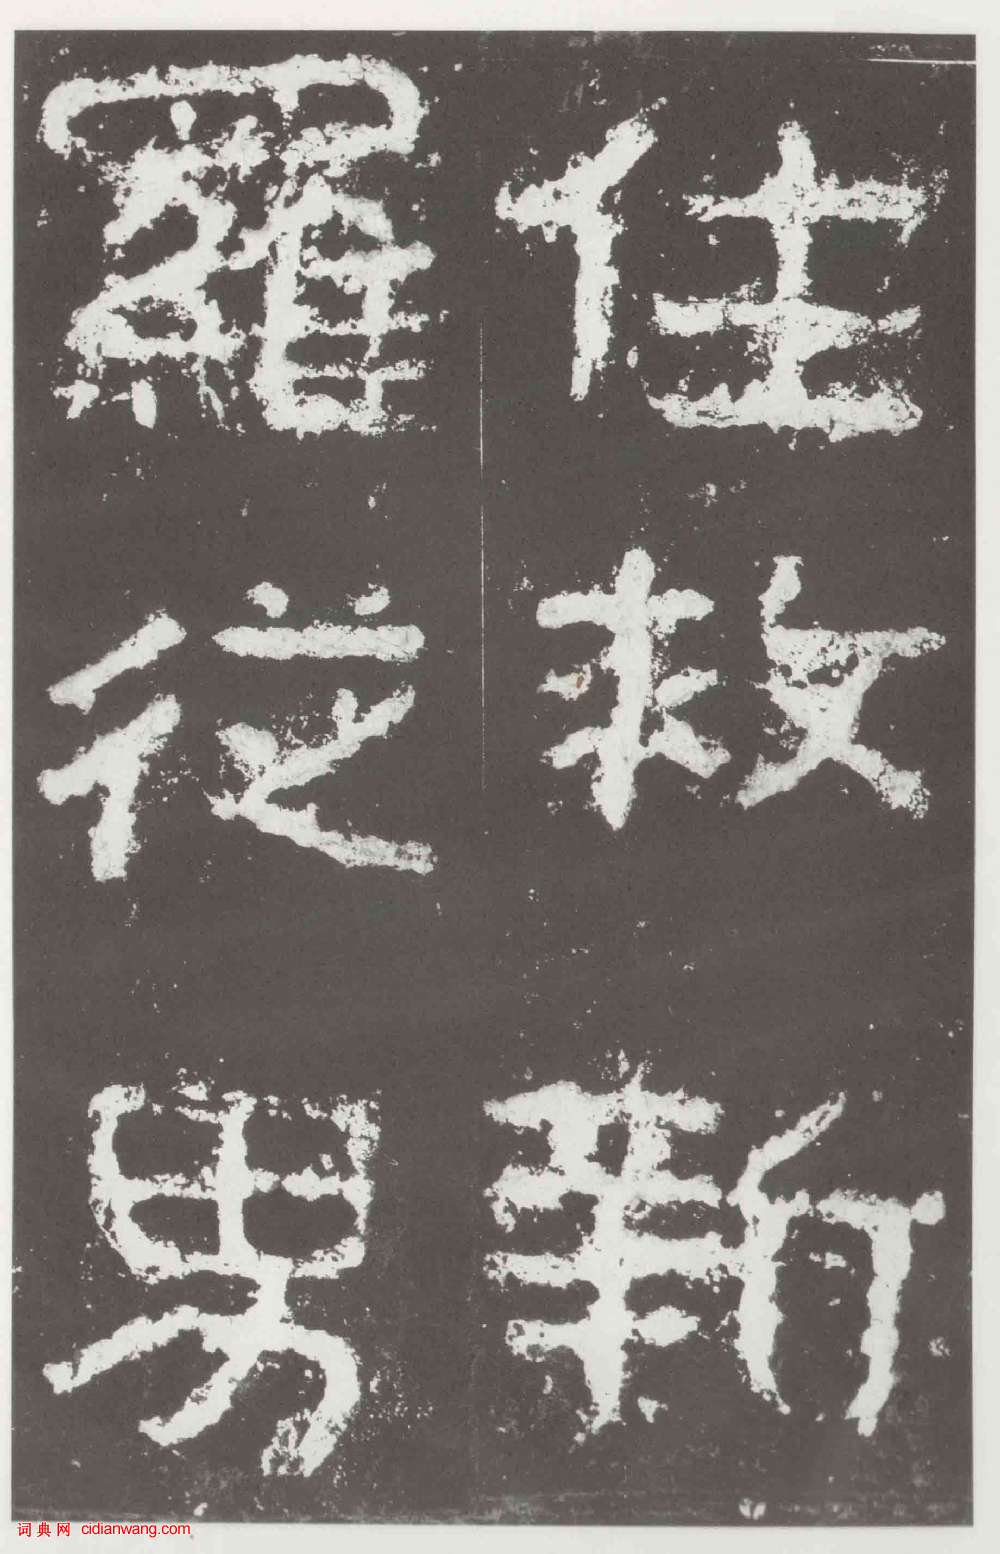 住救新
羅從男
词典网 cidianwang.com